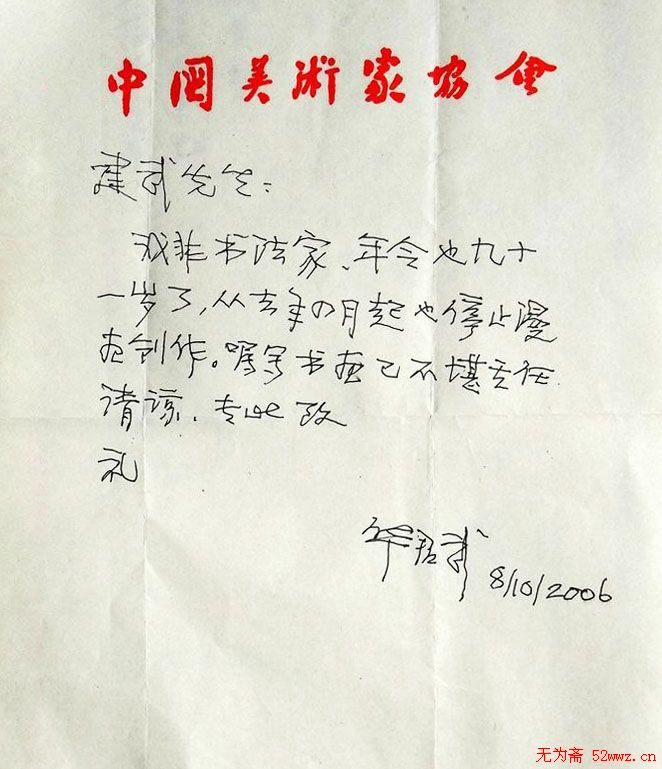 中国美術家协會
建武先生：
我非书法家、年令也九十
一岁了,从去年四月起也停止漫
画创作。嘱写书画已不堪重任
请谅、专此致
礼
华君武
8/10/2006
无为斋 52wwz.cn